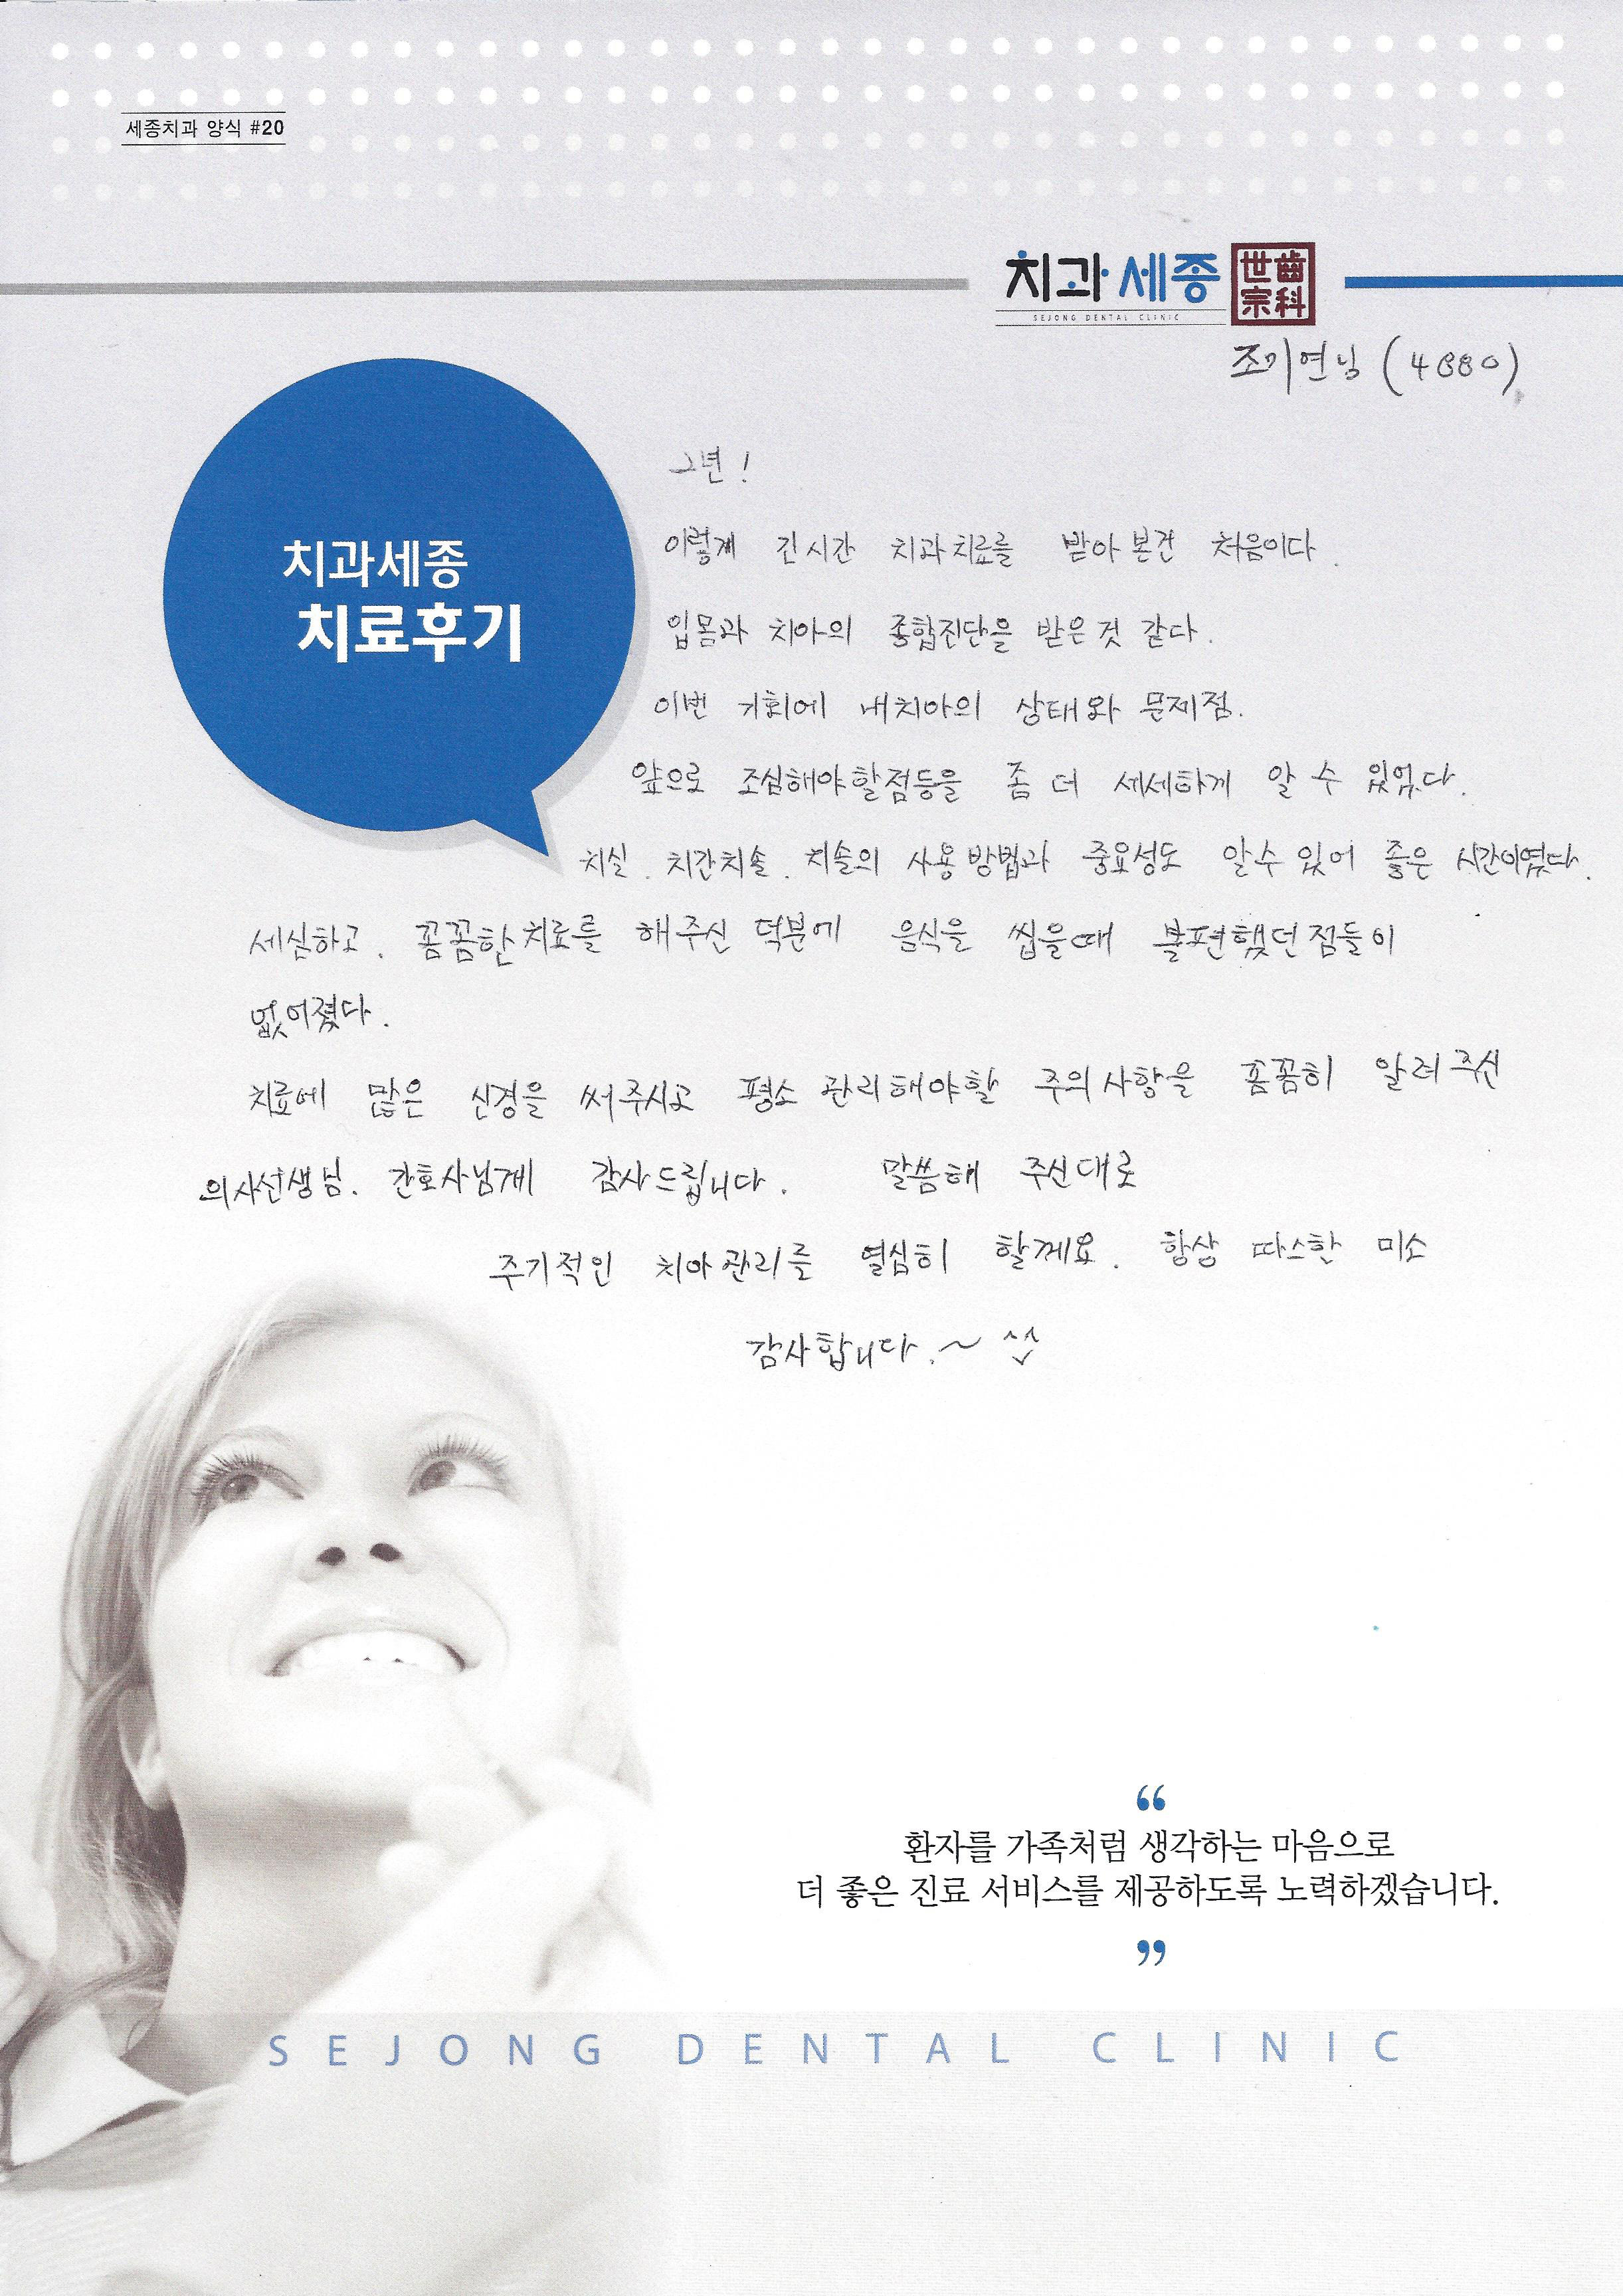 세종치과 양식 #20
치과세종
世齒
宗科
SEJONG DENTAL CLINIC
조기연님 (4880)
치과세종
치료후기
2년!
이렇게 긴시간 치과치료를 받아본건 처음이다.
입몸과 치아의 종합진단을 받은것 같다.
이번 기회에 내치아의 상태와 문제점.
앞으로 조심해야할점등을 좀 더 세세하게 알 수 있었다.
치실. 치간치솔. 치솔의 사용방법과 중요성도 알수 있어 좋은 시간이였다.
세심하고. 꼼꼼한치료를 해주신 덕분에 음식을 씹을때 불편했던점들이
없어졌다.
치료에 많은 신경을 써주시고 평소 관리해야할 주의사항을 꼼꼼히 알려주신
의사선생님. 간호사님게 감사드립니다. 말씀해 주신대로
주기적인 치아관리를 열심히 할께요. 항상 따스한 미소
감사합니다.~ ^^
“
환자를 가족처럼 생각하는 마음으로
더 좋은 진료 서비스를 제공하도록 노력하겠습니다.
”
SEJONG DENTAL CLINIC